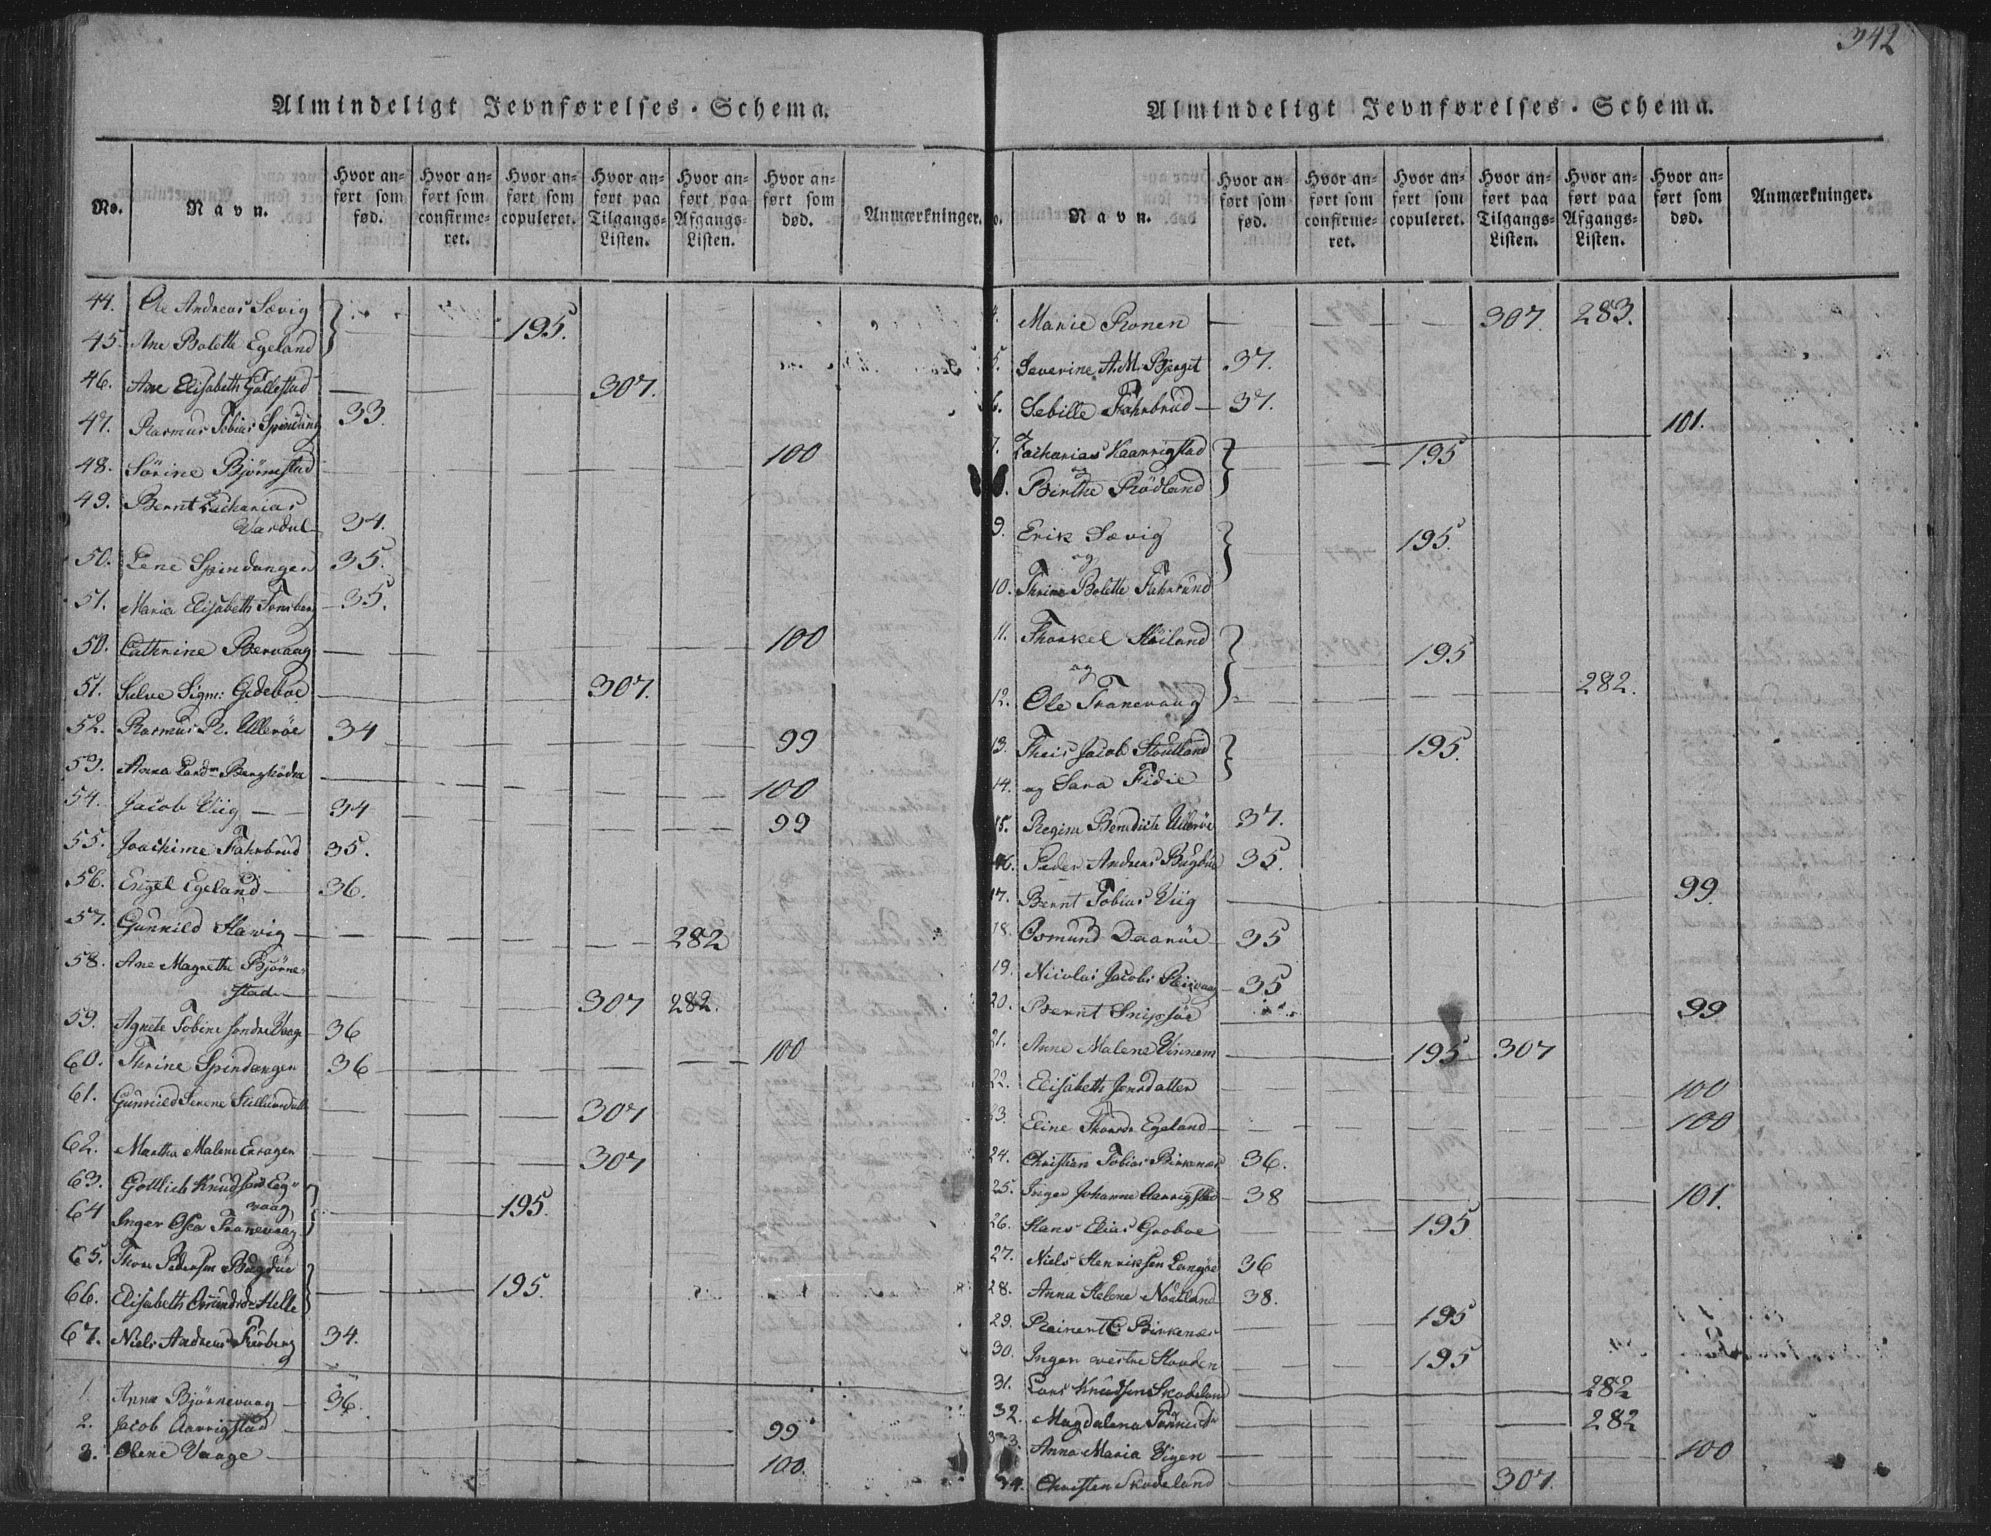 342
Almindeligt Jevnførelses-Schema.
No. Navn. Hvor anført som fød. Hvor anført som confirmeret. Hvor anført som copuleret. Hvor anført paa Tilgangs-Listen. Hvor anført paa Afgangs-Listen. Hvor anført som død. Anmærkninger.
44. Ole Andreas Sævig
45. Ane Bolette Egeland 195.
46. Ane Elisabeth Gollestad 307.
47. Rasmus Tobias Spindang 33.
48. Sörine Björnestad 100
49. Bernt Zacharias
Vardal 34.
50. Lene Spindangen 35.
51. Maria Elisabeth Tonsberg 35.
50. Cathrine Bervaag 100
51. Salve Sigm: Gedeboe 307.
52. Rasmus R. Ulleröe 34 99
53. Anna 100
54. Jacob Viig 34 99
55. Joachime Fahrbrud 35.
56. Engel Egeland 36.
57. Gunnild 282
58. Ane Magrethe Björne-
stad 307 282.
59. Agnete Tobine Söndre Vaage 36
60. Thrine Spindangen 36 100
61. Gunnild Serene 307
62. Martha Malene 307
63. Gottlieb Knudsen Eg-
vaag
64 Inger Osea Tranevaag 195.
65. Thore Pedersen Bugdöe
66. Elisabeth Osmundsd. Helle 195.
67. Niels Andreas 34.
1. Anna Björnevaag 36.
2. Jacob Aarrigstad 99
3. Olene Vaage 100.
Almindeligt Jevnførelses-Schema.
No. Navn. Hvor anført som fød. Hvor anført som confirmeret. Hvor anført som copuleret. Hvor anført paa Tilgangs-Listen. Hvor anført paa Afgangs-Listen. Hvor anført som død. Anmærkninger.
4. Marie Ronen 307. 283.
5. Severine A. M. Bjerget 37.
6. Sebille Fahrbrud 37. 101.
7. Zacharias Kaarrigstad 195
og
Birthe Rödland
9. Erik Sævig 195.
og
10. Thrine Bolette Fahrbrud
11. Thorkel Höiland 195
og
12. Ole Tranevaag 282.
13. Theis Jacob Stoutland 195.
14. og Sara Fidie
15. Regina Benedicte Ulleröe 37.
16. Peder Andreas Bugdöe 35.
17. Bernt Tobias Viig 99.
18. Osmund Daaröe 35
19. Nicolai Jacobs 35
20. Bernt 99
21. Anne Malene Vinnem 195 307
22. Elisabeth Jensdatter 100
23. Eline Thorsd. Egeland 100
24. Christian Tobias Birkenæs 36.
25. Inger Johanne Aarrigstad 38 101.
26. Hans Elias Groboe 195
27. Niels Henriksen Langöe 36
28. Anna Helene Nödland 38.
29. Reinert C Birkenæs 195
30. Inger vestre Houden 195
31. Lars Knudsen Skadeland 282
32. Magdalena 282
33. Anna Maria Vigen 100
34. Christen Skadeland 307.